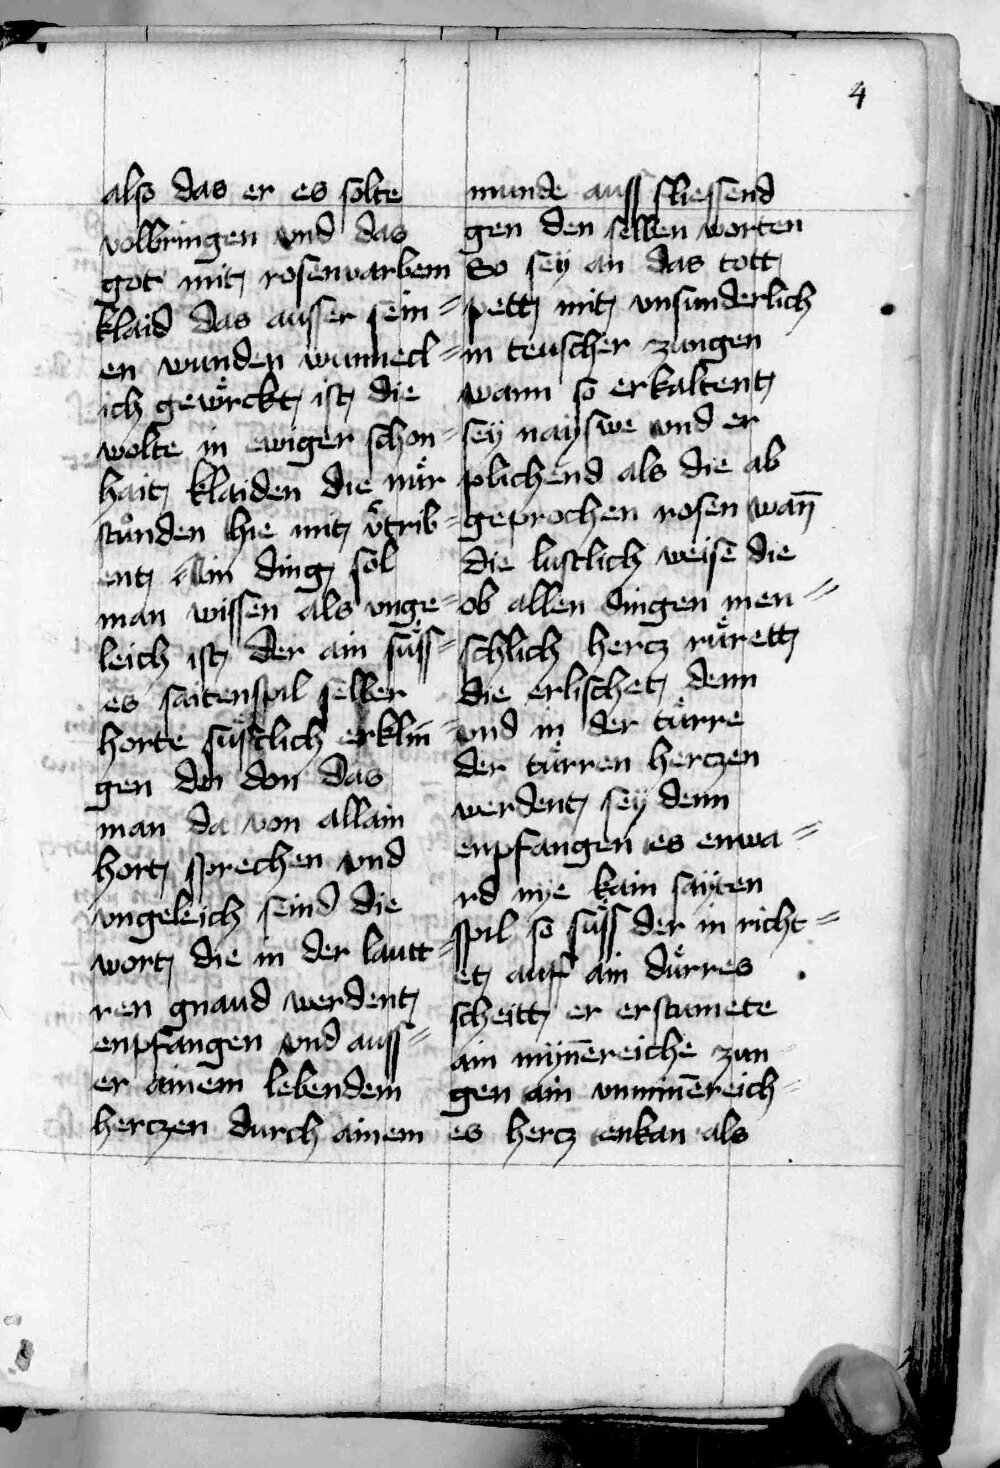 4
also das er es solte
volbringen vnd das
got mit rosenvarbem
klaid das ausser sein=
en wunden wunnecl=
ich gewörckt ist die
wolte in ewiger schon=
hait klaiden die nür
stunden hie mit vͤtrib=
ent Ain ding sol
man wissen als vnge=
leich ist der ain süss=
es saitenspil selber
horte süsslich erklin=
gen den don das
man da von allain
hort sprechen vnd
vngeleich seind die
wort die in der lautt=
ren gnaud werdent
enpfangen vnd auss=
er ainem lebendem
hertzen durch ainem
munde auss fliessend
gen den selben worten
So sey an das tott
pett mit vnsunderlich
in teuscher zungen
wann so erkaltent
sey nayswe vnd er
plichend als die ab
geprochen rosen wan̄
die lustlich weise die
ob allen dingen men=
schlich hertz rürett
die erlischet denn
vnd in der türre
der türren hertzen
werdent sey denn
enpfangen es enwa=
rd nye kain sayten
spil so süss der in richt=
et auf ain dürres
scheitt er erstumete
ain mÿnēreiche zun
gen ain vnminēreich=
es hertz enkan als